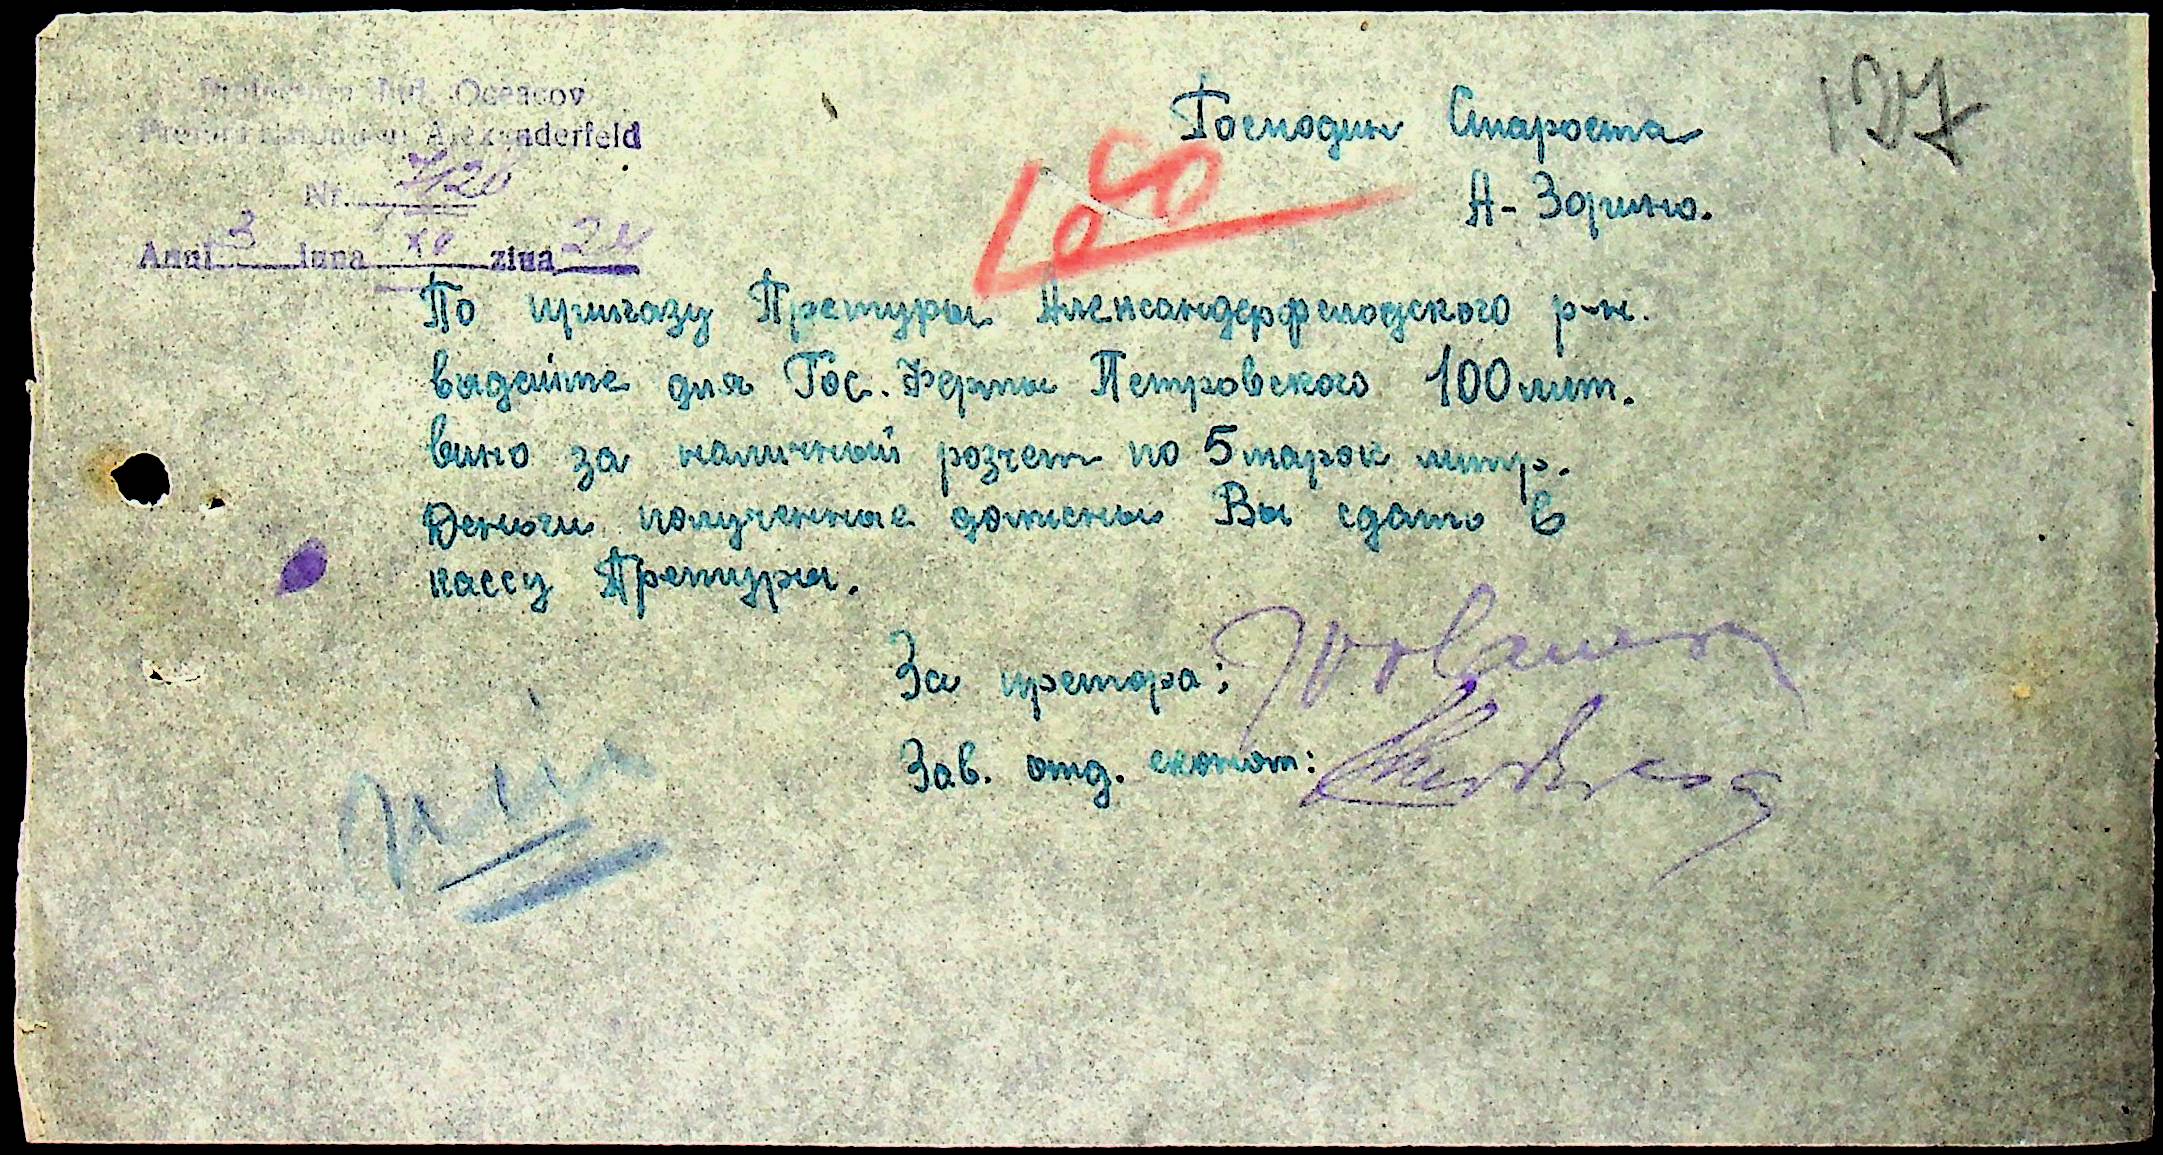 Prefectura Jud. Oceacov
Pretura Raionului Alexanderfeld
Nr. 7120
Anul 3 luna XI ziua 24
127
Господин Староста
А-Зорино.
По приказу Претуры Александерфельдского р-н.
выдайте для Гос. Фермы Петровского 100 лит.
вино за наличный розчет по 5 марок литр.
Деньги полученные должены Вы сдать в
кассу Претуры.
За претора:
Зав. отд. економ: